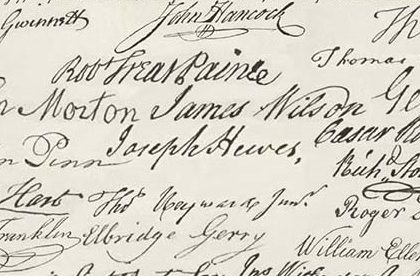 Gwinnett John Hancock
Robt Treat Paine Thomas
Morton James Wilson
Joseph Hewes, Caesar
Penn Richd
Hart Thos Heyward Junr. Roger
Franklin Elbridge Gerry William